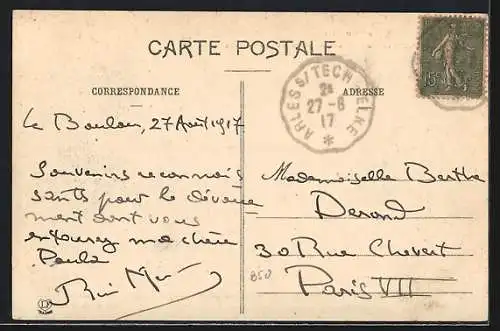 CARTE POSTALE
CORRESPONDANCE
ADRESSE
15c
ARLES S/TECH ELNE
2E
27-8
17
Le Boulou, 27 Août 1917
Souvenirs reconnais
sants pour le dévoue
ment dont vous
entourez ma chère
Paula
Mademoiselle Berthe
Derond
30 Rue Chevert
Paris VII
850